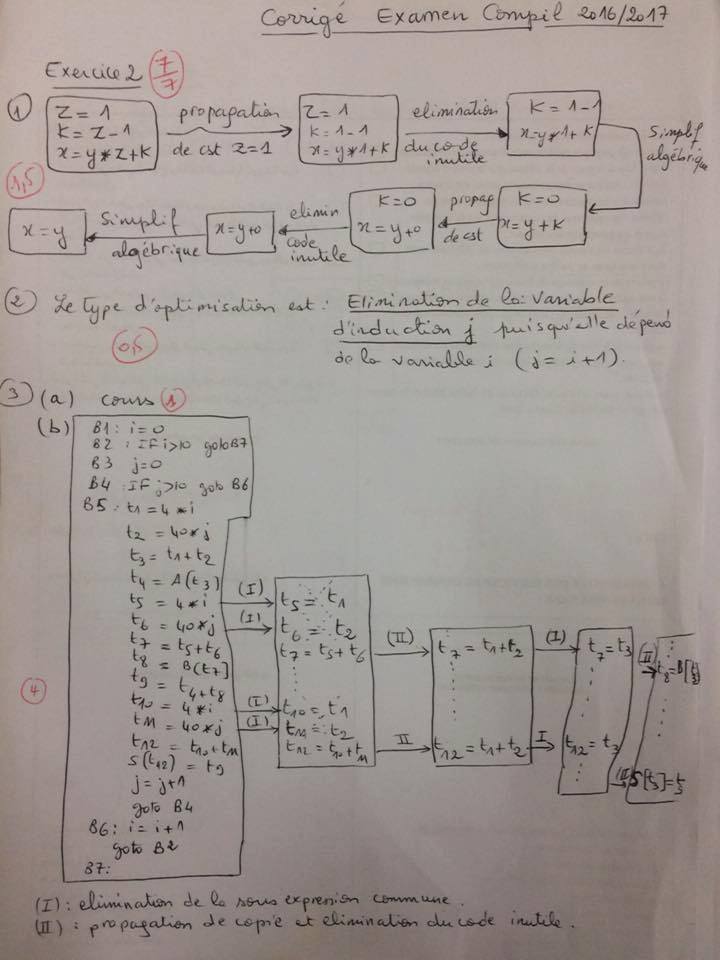 Corrigé Examen Compil 2016/2017
Exercice 2 7/7
1
Z = 1
K = Z-1
x = y*Z+K
propagation
de cst Z=1
Z = 1
K = 1-1
x = y*1+K
elimination
du code
inutile
K = 1-1
x=y*1+K
Simplif
algébrique
1,5
K=0
x = y+K
propag
de cst
K=0
x = y+0
elimin
code
inutile
x=y+0
Simplif
algébrique
x=y
2 Le type d'optimisation est : Elimination de la variable
d'induction j puisqu'elle dépend
de la variable i (j= i+1).
0,5
3 (a) cours 1
(b)
B1: i=0
B2 : IF i>10 goto B7
B3 j=0
B4 : IF j>10 goto B6
B5 : t1 = 4 * i
t2 = 40*j
t3 = t1+t2
t4 = A(t3)
t5 = 4*i
t6 = 40*j
t7 = t5+t6
t8 = B(t7]
t9 = t4+t8
t10 = 4*i
t11 = 40*j
t12 = t10+t11
S(t12) = t9
j= j+1
goto B4
B6: i = i+1
goto B2
B7:
4
(I)
(I)
(I)
(I)
t5 = t1
t6 = t2
t7 = t5+t6
t10 = t1
t11 = t2
t12 = t10+t11
(II)
II
t7 = t1+t2
t12 = t1+t2
(I)
I
t7 = t3
t12 = t3
(II)
(II)
t8=B[t3]
S[t3]=t9
(I) : elimination de la sous expression commune.
(II) : propagation de copie et elimination du code inutile.